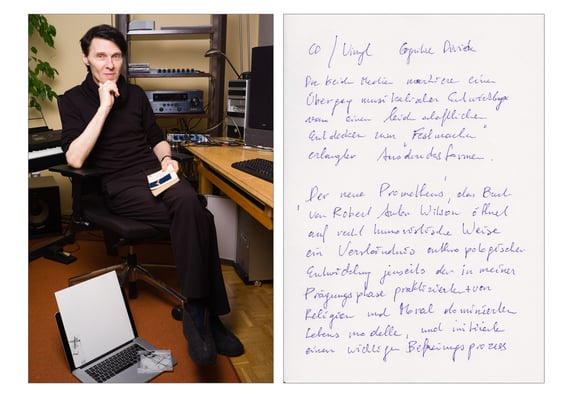 CD / Vinyl Cognitive Division
Die beiden Medien markieren einen
Übergang musikalischer Entwicklungen
von einem leidenschaftlichen
Entdecken zum "Festmachen"
erlangter Ausdrucksformen.
"Der neue Prometheus", das Buch
von Robert Anton Wilson öffnet
auf recht humoristische Weise
ein Verständnis anthropologischer
Entwicklung jenseits der in meiner
Prägungsphase praktizierten von
Religion und Moral dominierten
Lebensmodelle, und initiierte
einen wichtigen Befreiungsprozess